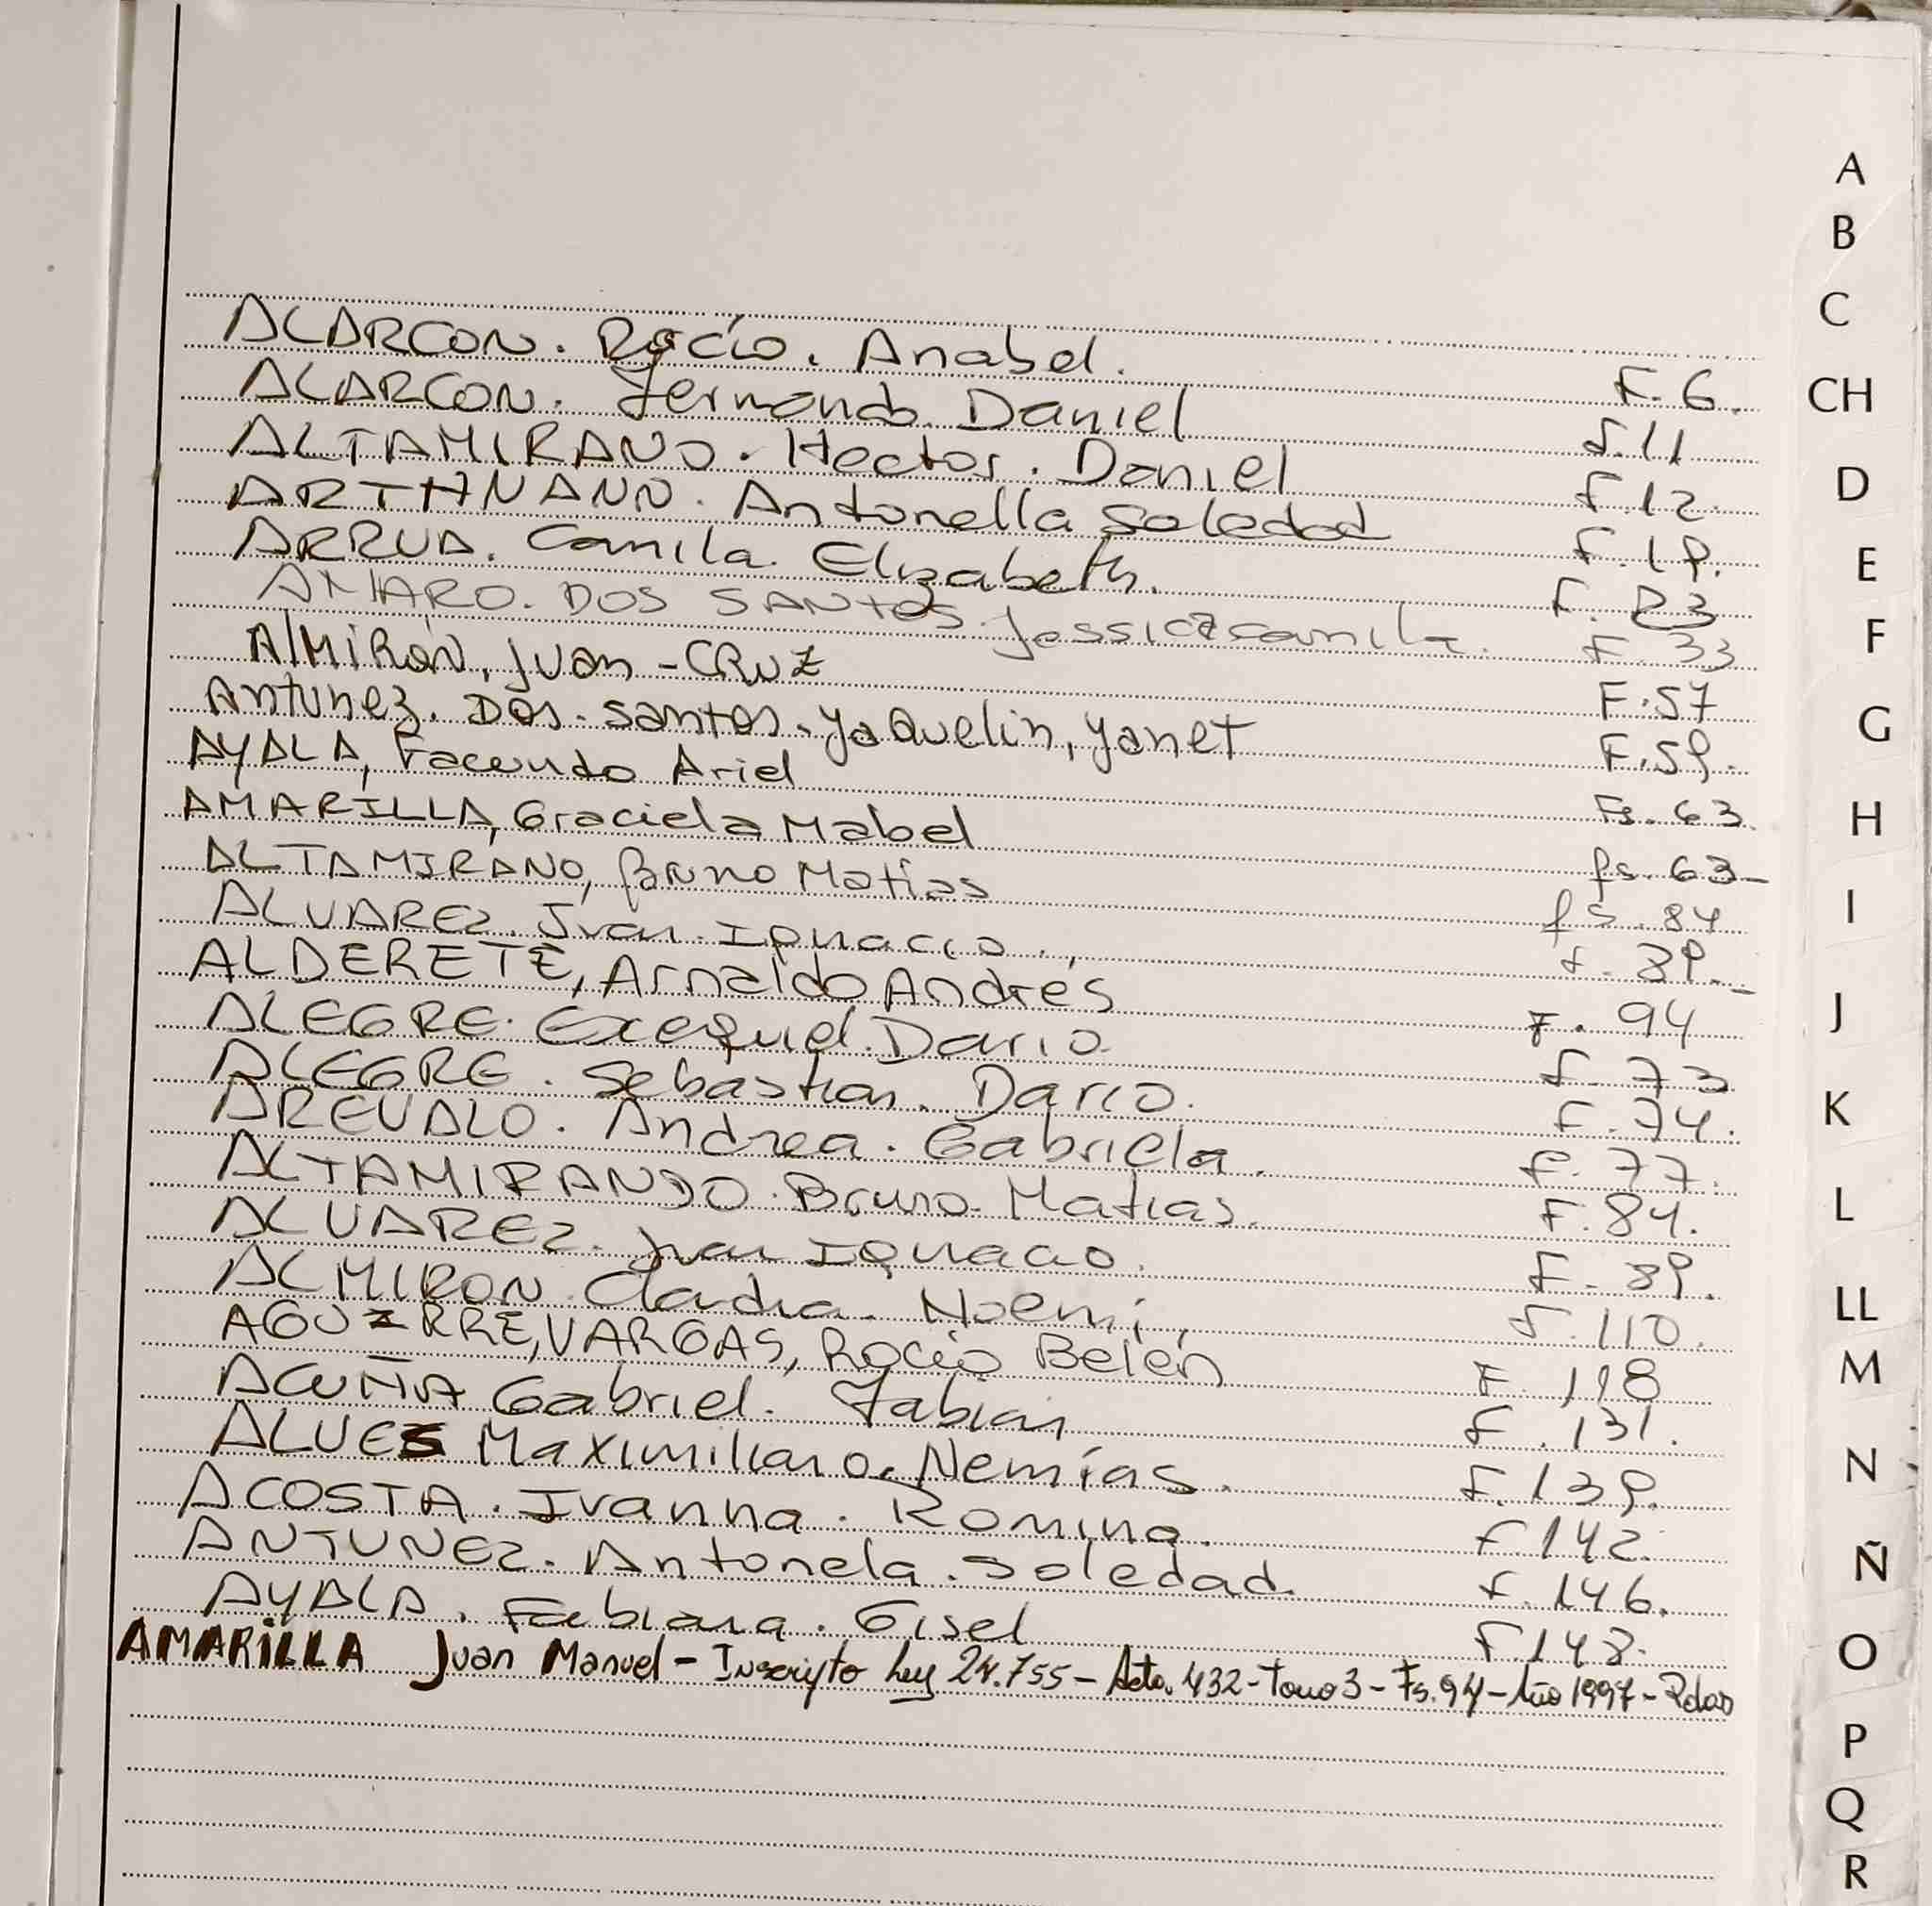 ALARCON. Rocío. Anabel. F. 6.
ALARCON. Fernando. Daniel f. 11
ALTAMIRANO. Hector. Daniel f. 12.
ARTHNANN. Antonella Soledad f. 19.
ARRUA. Camila. Elizabeth. F. 23
AMARO. DOS SANTOS. Jessica camila. F. 33
AlMiRón, Juan - CRUZ F. 57
Antunez. Dos. santos. yaquelin, yanet F. 59.
AYALA, Facundo Ariel Fs. 63.
AMARILLA, Graciela Mabel fs. 63-
ALTAMIRANO, Bruno Matias fs. 84
ALVAREZ. Juan. Ignacio. f. 89.-
ALDERETE, Arnaldo Andrés F. 94
ALEGRE. Exequiel. Dario. f. 73
ALEGRE. Sebastian. Dario. F. 74.
AREVALO. Andrea. Gabriela. f. 77.
ALTAMIRANDO. Bruno. Matias. F. 84.
ALVAREZ. Juan Ignacio. F. 89.
ALMIRON. Claudia. Noemí, f. 110.
AGUIRRE, VARGAS, Rocío Belén F. 118
ACUÑA Gabriel. Fabian f. 131.
ALVES Maximiliano. Nemías. F. 139.
ACOSTA. Ivanna. Romina. f 142.
ANTUNEZ. Antonela. Soledad. f. 146.
AYALA. Fabiana. Gisel f 148.
AMARiLLA Juan Manuel - Inscripto Ley 24.755 - Acta. 432 - Tomo 3 - Fs. 94 - Año 1997 -
A
B
C
CH
D
E
F
G
H
I
J
K
L
LL
M
N
Ñ
O
P
Q
R